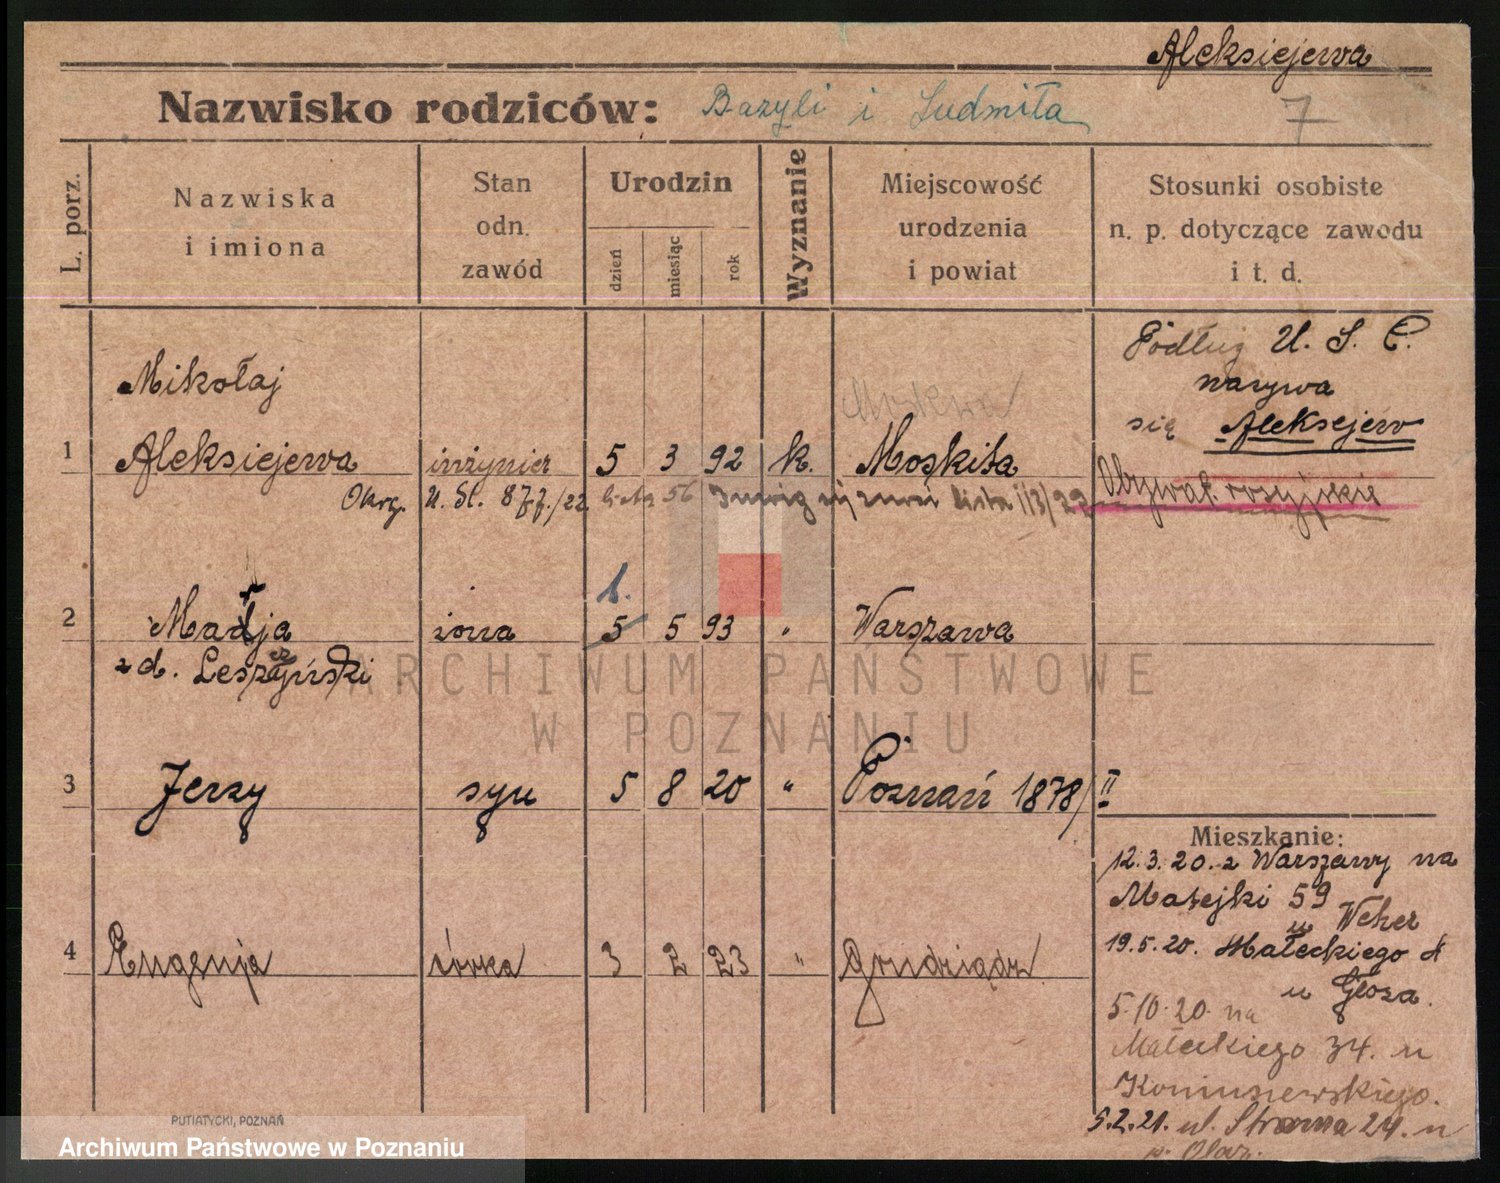 Aleksiejewa
Nazwisko rodziców: Bazyli i Ludmiła
7
L. porz.
Nazwiska
i imiona
Stan
odn.
zawód
Urodzin
dzień
miesiąc
rok
Wyznanie
Miejscowość
urodzenia
i powiat
Stosunki osobiste
n. p. dotyczące zawodu
i t. d.
Mikołaj
Moskwa
Podług U. S. C.
nazywa
się Aleksejew
1 Aleksiejewa inżynier 5 3 92 k. Moskwa
Obywat. rosyjskie
Okrę. U. St. 877./22 lista 1/3/22
1.
2 Madja żona 5 5 93 " Warszawa
z d. Leszczyński
3 Jerzy syn 5 8 20 " Poznań 1878/II
Mieszkanie:
12.3.20. z Warszawy na
Matejki 59
u Weher
19.5.20. Małeckiego
u Gloza.
4 Eugenja córka 3 2 23 " Grudziądz
5.10.20 na
Małeckiego 34. u
5.2.21. ul. Stroma 24. u
PUTIATYCKI, POZNAŃ
ARCHIWUM PAŃSTWOWE
W POZNANIU
Archiwum Państwowe w Poznaniu